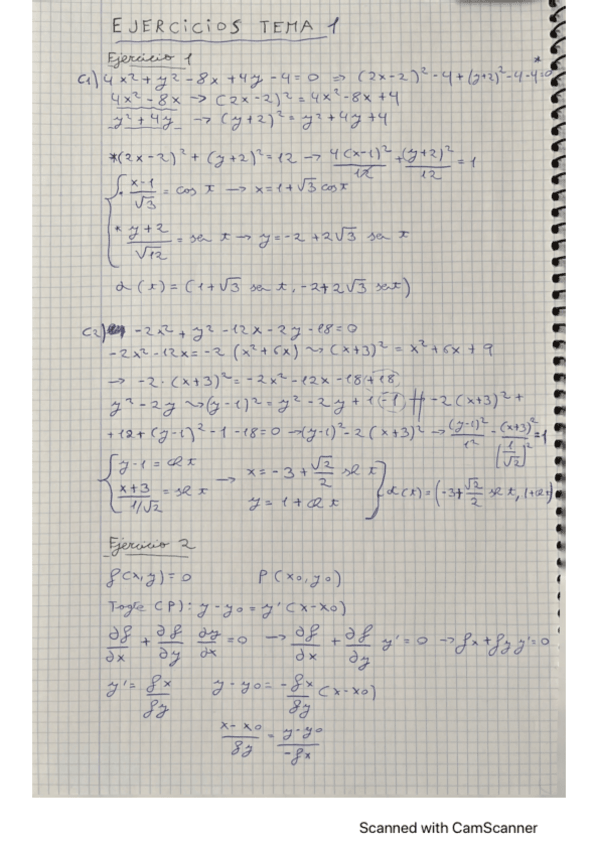 EJERCICIOS TEMA 1
Ejercicio 1
C1) 4x² + y² - 8x + 4y - 4 = 0 ⇒ (2x-2)² - 4 + (y+2)² - 4 - 4 = 0 *
4x² - 8x → (2x-2)² = 4x² - 8x + 4
y² + 4y → (y+2)² = y² + 4y + 4
*(2x-2)² + (y+2)² = 12 → 4(x-1)²/12 + (y+2)²/12 = 1
* x-1/√3 = cos t → x = 1 + √3 cos t
* y+2/√12 = sen t → y = -2 + 2√3 sen t
α(t) = (1+√3 sen t, -2+2√3 sent)
C2) -2x² + y² - 12x - 2y - 18 = 0
-2x² - 12x = -2 (x² + 6x) ⤳ (x+3)² = x² + 6x + 9
→ -2·(x+3)² = -2x² - 12x - 18 + 18
y² - 2y ⤳ (y-1)² = y² - 2y + 1 (-1) -2(x+3)² +
+ 12 + (y-1)² - 1 - 18 = 0 → (y-1)² - 2(x+3)² → (y-1)²/1² - (x+3)²/(1/√2)² = 1
y-1 = ch t → x = -3 + √2/2 sh t
x+3/1/√2 = sh t y = 1 + ch t } α(t) = (-3+ √2/2 sh t, 1+ch t)
Ejercicio 2
f(x,y) = 0 P(x0, y0)
Togte (P): y - y0 = y' (x - x0)
∂f/∂x + ∂f/∂y ∂y/∂x = 0 → ∂f/∂x + ∂f/∂y y' = 0 → fx + fy y' = 0
y' = fx/fy y - y0 = -fx/fy (x - x0)
x - x0/fy = y - y0/-fx
Scanned with CamScanner